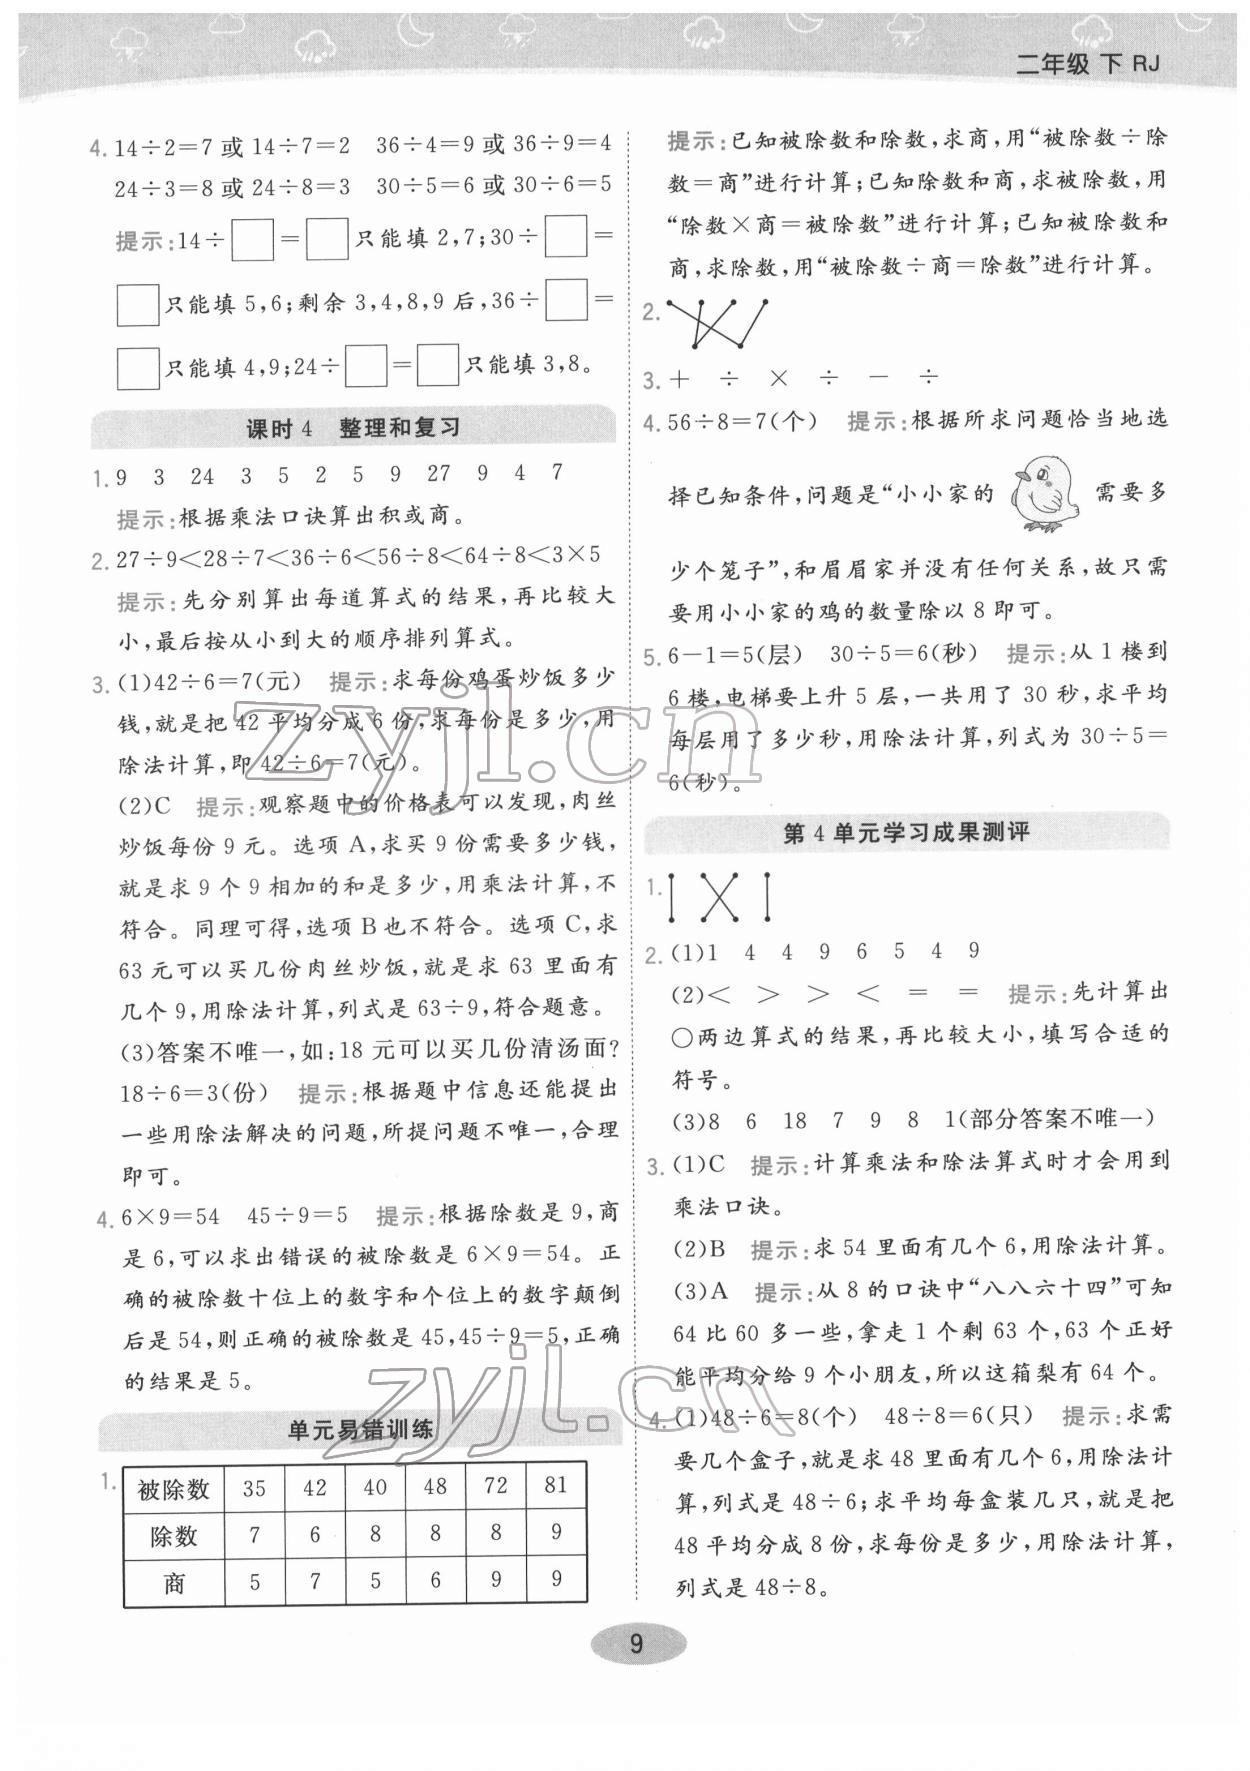 二年级 下 RJ
4. 14÷2=7 或 14÷7=2 36÷4=9 或 36÷9=4
24÷3=8 或 24÷8=3 30÷5=6 或 30÷6=5
提示:14÷□=□只能填 2,7;30÷□=
□只能填 5,6;剩余 3,4,8,9 后,36÷□=
□只能填 4,9;24÷□=□只能填 3,8。
课时 4 整理和复习
1. 9 3 24 3 5 2 5 9 27 9 4 7
提示:根据乘法口诀算出积或商。
2. 27÷9<28÷7<36÷6<56÷8<64÷8<3×5
提示:先分别算出每道算式的结果,再比较大
小,最后按从小到大的顺序排列算式。
3. (1)42÷6=7(元) 提示:求每份鸡蛋炒饭多少
钱,就是把 42 平均分成 6 份,求每份是多少,用
除法计算,即 42÷6=7(元)。
(2)C 提示:观察题中的价格表可以发现,肉丝
炒饭每份 9 元。选项 A,求买 9 份需要多少钱,
就是求 9 个 9 相加的和是多少,用乘法计算,不
符合。同理可得,选项 B 也不符合。选项 C,求
63 元可以买几份肉丝炒饭,就是求 63 里面有
几个 9,用除法计算,列式是 63÷9,符合题意。
(3)答案不唯一,如:18 元可以买几份清汤面?
18÷6=3(份) 提示:根据题中信息还能提出
一些用除法解决的问题,所提问题不唯一,合理
即可。
4. 6×9=54 45÷9=5 提示:根据除数是 9,商
是 6,可以求出错误的被除数是 6×9=54。正
确的被除数十位上的数字和个位上的数字颠倒
后是 54,则正确的被除数是 45,45÷9=5,正确
的结果是 5。
单元易错训练
1. 被除数 35 42 40 48 72 81
除数 7 6 8 8 8 9
商 5 7 5 6 9 9
提示:已知被除数和除数,求商,用“被除数÷除
数=商”进行计算;已知除数和商,求被除数,用
“除数×商=被除数”进行计算;已知被除数和
商,求除数,用“被除数÷商=除数”进行计算。
2.
3. + ÷ × ÷ − ÷
4. 56÷8=7(个) 提示:根据所求问题恰当地选
择已知条件,问题是“小小家的 需要多
少个笼子”,和眉眉家并没有任何关系,故只需
要用小小家的鸡的数量除以 8 即可。
5. 6−1=5(层) 30÷5=6(秒) 提示:从 1 楼到
6 楼,电梯要上升 5 层,一共用了 30 秒,求平均
每层用了多少秒,用除法计算,列式为 30÷5=
6(秒)。
第 4 单元学习成果测评
1.
2. (1)1 4 4 9 6 5 4 9
(2)< > > < = = 提示:先计算出
○两边算式的结果,再比较大小,填写合适的
符号。
(3)8 6 18 7 9 8 1(部分答案不唯一)
3. (1)C 提示:计算乘法和除法算式时才会用到
乘法口诀。
(2)B 提示:求 54 里面有几个 6,用除法计算。
(3)A 提示:从 8 的口诀中“八八六十四”可知
64 比 60 多一些,拿走 1 个剩 63 个,63 个正好
能平均分给 9 个小朋友,所以这箱梨有 64 个。
4. (1)48÷6=8(个) 48÷8=6(只) 提示:求需
要几个盒子,就是求 48 里面有几个 6,用除法计
算,列式是 48÷6;求平均每盒装几只,就是把
48 平均分成 8 份,求每份是多少,用除法计算,
列式是 48÷8。
9
zyjl.cn
zyjl.cn